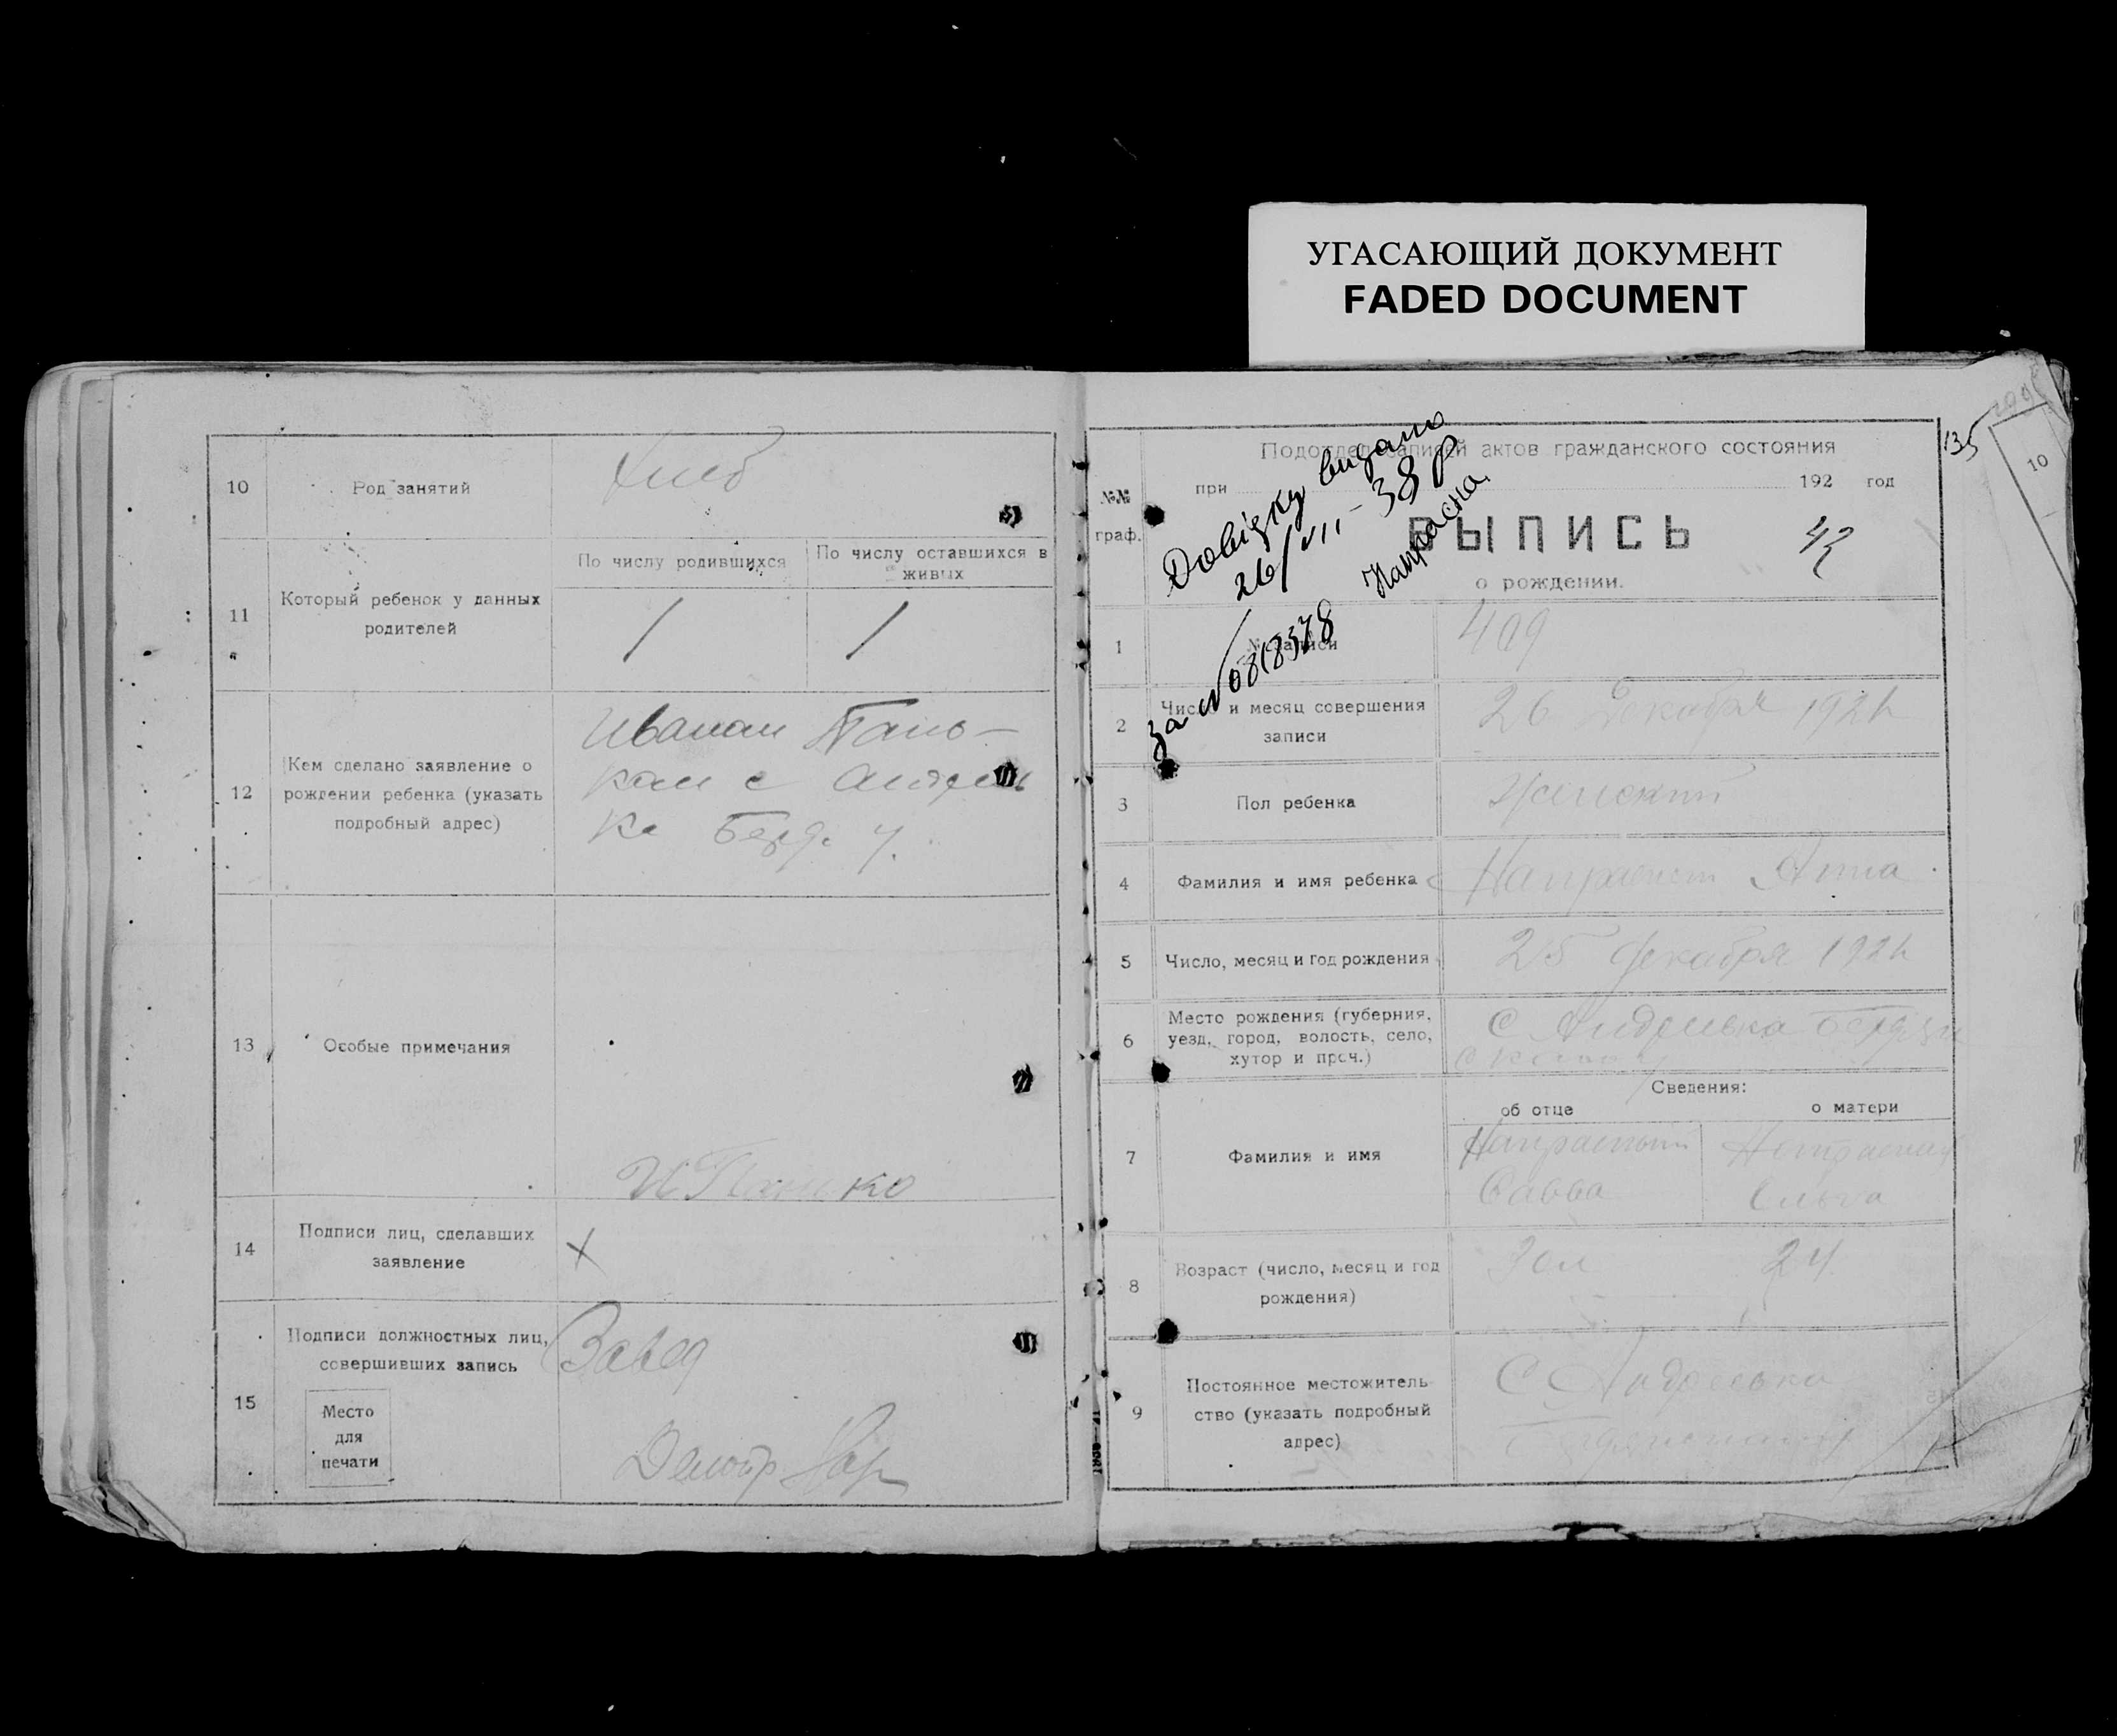 УГАСАЮЩИЙ ДОКУМЕНТ
FADED DOCUMENT
10
Род занятий
Хлеб
11
Который ребенок у данных
родителей
По числу родившихся
По числу оставшихся в
живых
/
/
12
Кем сделано заявление о
рождении ребенка (указать
подробный адрес)
Иваном Пань-
ком с Андреев
ке Берд. у.
13
Особые примечания
И Панько
14
Подписи лиц, сделавших
заявление
X
15
Подписи должностных лиц,
совершивших запись
Завед
Место
для
печати
135
10
Подотдел записей актов гражданского состояния
при
192 год
№№
граф.
ВЫПИСЬ
о рождении.
Довідку видано
26/VII-38 р
Напрасна
за № 0818378
1
№ записи
409
2
Число и месяц совершения
записи
26 Декабря 192
3
Пол ребенка
Женский
4
Фамилия и имя ребенка
Напрасный Анна
5
Число, месяц и год рождения
25 Декабря 192
6
Место рождения (губерния,
уезд, город, волость, село,
хутор и проч.)
С Андреевка
Сведения:
об отце
о матери
7
Фамилия и имя
Напрасный
Савва
Ольга
8
Возраст (число, месяц и год
рождения)
24
9
Постоянное местожитель
ство (указать подробный
адрес)
С Андреевка